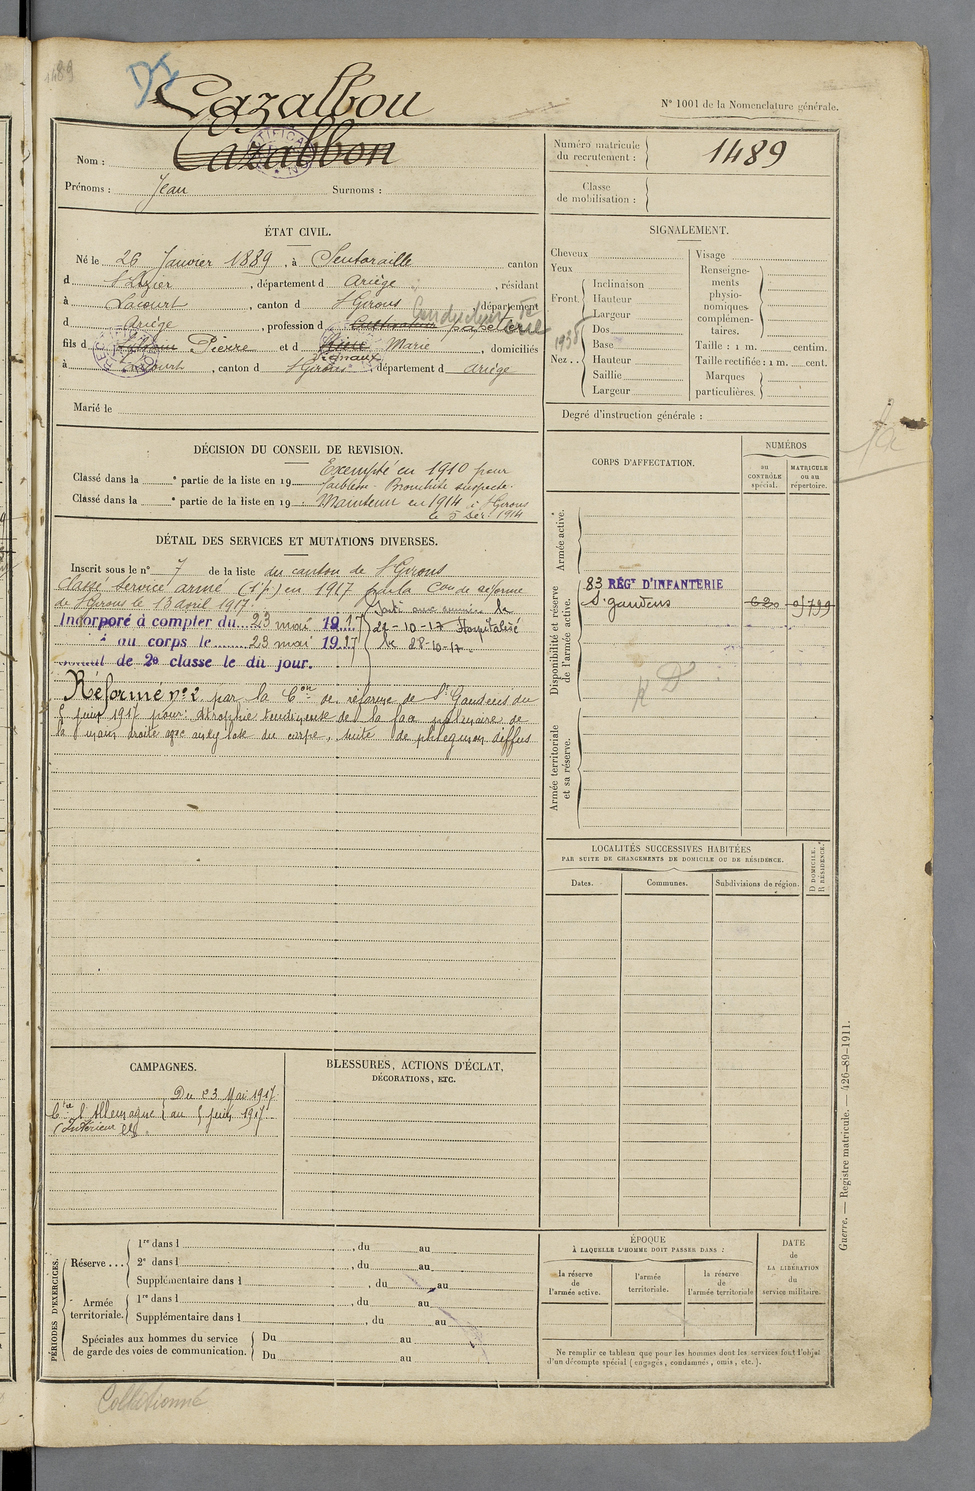 1489
Cazalbou
N° 1001 de la Nomenclature générale.
Nom : Cazabbon
Prénoms : Jean Surnoms :
Numéro matricule du recrutement : 1489
Classe de mobilisation :
ÉTAT CIVIL.
Né le 26 Janvier 1889, à Sentaraille canton
d St Lizier, département d Ariège, résidant
à Lacourt, canton d St Girons, département
d Ariège, profession d Cultivateur Conducteur papeterie
1938
fils d Pierre et d Marie, domiciliés
à Lacourt, canton d St Girons, département d Ariège
Marié le
SIGNALEMENT.
Cheveux
Yeux
Front. Inclinaison
Hauteur
Largeur
Nez... Dos
Base
Hauteur
Saillie
Largeur
Visage
Renseignements physionomiques complémentaires.
Taille : 1 m. centim.
Taille rectifiée : 1 m. cent.
Marques particulières.
Degré d'instruction générale :
DÉCISION DU CONSEIL DE REVISION.
Classé dans la e partie de la liste en 19 Exempté en 1910 pour
faiblesse. Bronchite suspecte.
Classé dans la e partie de la liste en 19 : Maintenu en 1914 à St Girons
le 5 Déc 1914
DÉTAIL DES SERVICES ET MUTATIONS DIVERSES.
Inscrit sous le n° 7 de la liste du canton de St Girons
Classé service armé (1e p) en 1917 par la Con de réforme
de St Girons le 13 avril 1917.
Incorporé à compter du 23 mai 1917
au corps le 23 mai 1917
soldat de 2e classe le dit jour.
22-10-17 Hospitalisé
le 28-10-17.
Réformé n° 2 par la Con de réforme de St Gaudens du
5 juin 1917 pour : atrophie tendineuse de la face palmaire de
la main droite avec ankylose du carpe, suite de phlegmon diffus
CORPS D'AFFECTATION.
NUMÉROS
au CONTRÔLE spécial.
MATRICULE ou au répertoire.
Armée active.
Disponibilité et réserve de l'armée active.
83 RÉGt D'INFANTERIE
St Gaudens
Armée territoriale et sa réserve.
LOCALITÉS SUCCESSIVES HABITÉES
PAR SUITE DE CHANGEMENTS DE DOMICILE OU DE RÉSIDENCE.
Dates. Communes. Subdivisions de région.
D DOMICILE.
R RÉSIDENCE.
CAMPAGNES.
Du 23 Mai 1917
Cie d'Allemagne au 5 juin 1917
Intérieur
BLESSURES, ACTIONS D'ÉCLAT,
DÉCORATIONS, ETC.
PÉRIODES D'EXERCICES.
Réserve... 1re dans l , du au
2e dans l , du au
Supplémentaire dans l , du au
Armée territoriale. 1re dans l , du au
Supplémentaire dans l , du au
Spéciales aux hommes du service de garde des voies de communication. Du au
Du au
ÉPOQUE
À LAQUELLE L'HOMME DOIT PASSER DANS :
la réserve de l'armée active.
l'armée territoriale.
la réserve de l'armée territoriale
DATE
de
LA LIBÉRATION
du
service militaire.
Ne remplir ce tableau que pour les hommes dont les services font l'objet
d'un décompte spécial (engagés, condamnés, omis, etc.).
Guerre. — Registre matricule. — 426-89-1911.
Collationné